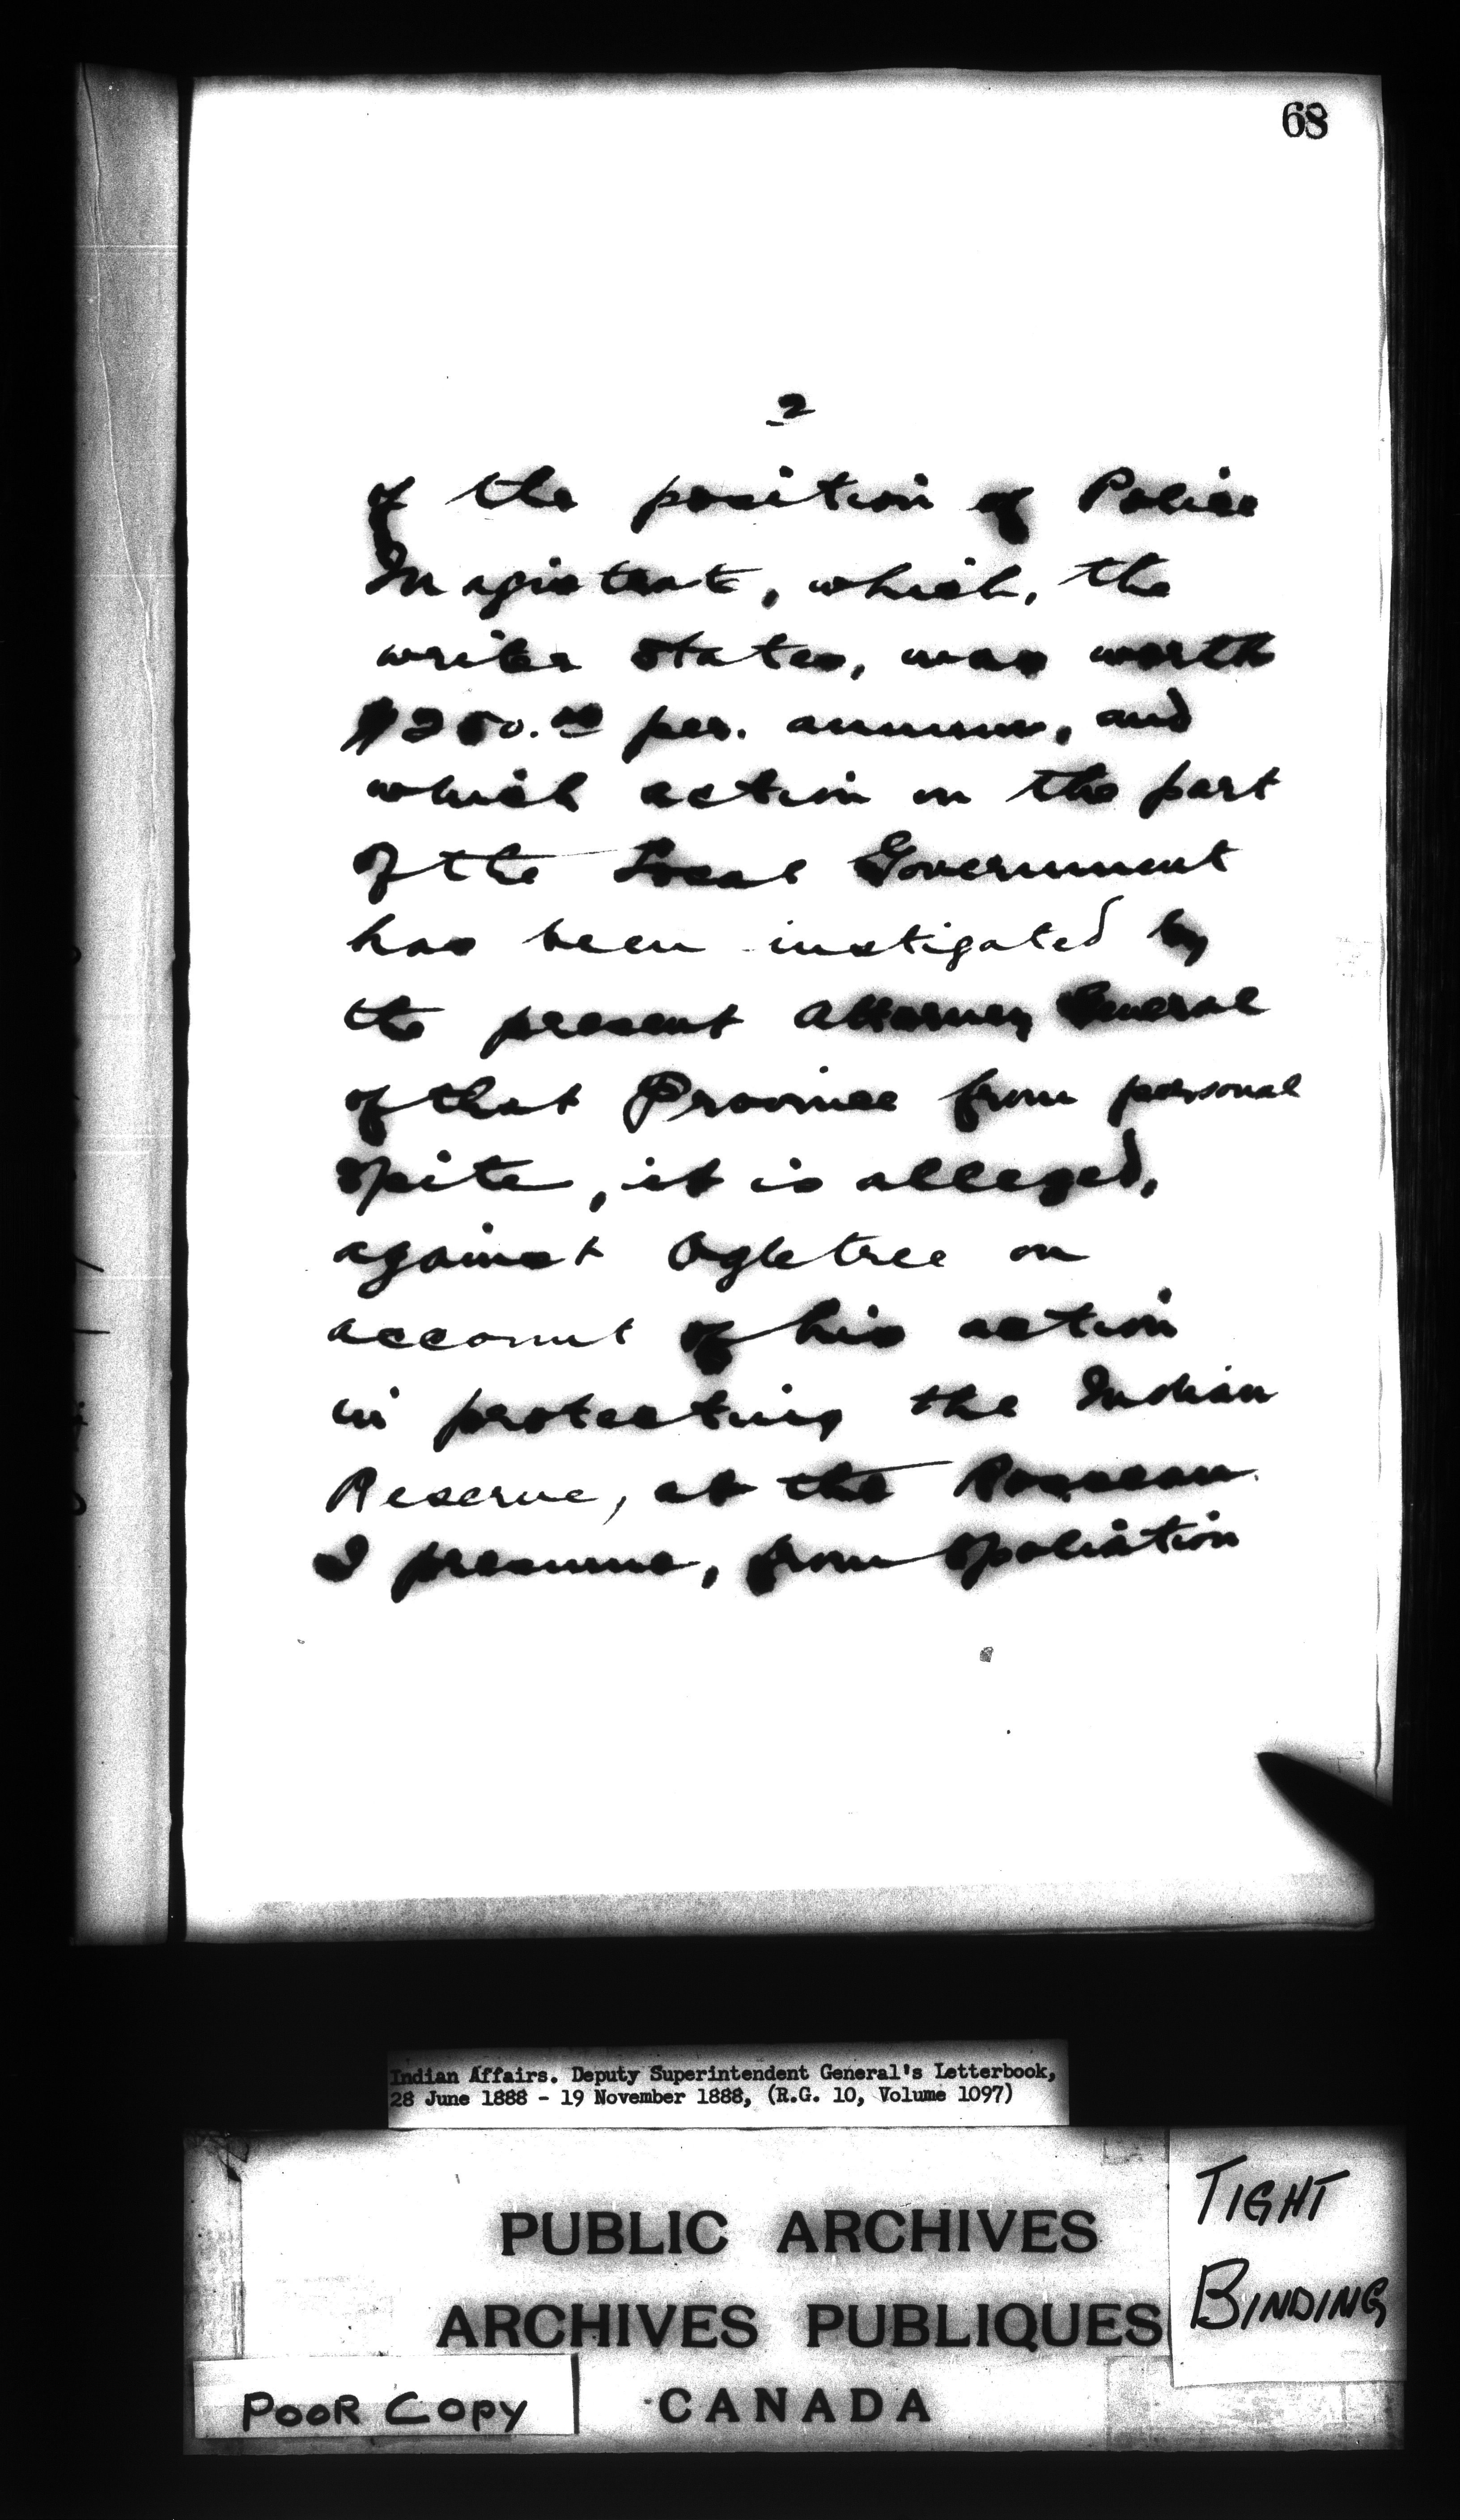 68
2
of the position of Police
Magistrate, which, the
writer states, was worth
$250.00 per. annum, and
which action on the part
of the Local Government
has been instigated by
the present Attorney General
of that Province from personal
spite, it is alleged,
against Ogletree on
account of his action
in protecting the Indian
Reserve, at the Rosseau
I presume, from spoliation
Indian Affairs. Deputy Superintendent General's Letterbook,
28 June 1888 - 19 November 1888, (R.G. 10, Volume 1097)
PUBLIC ARCHIVES
ARCHIVES PUBLIQUES
CANADA
TIGHT
BINDING
POOR COPY